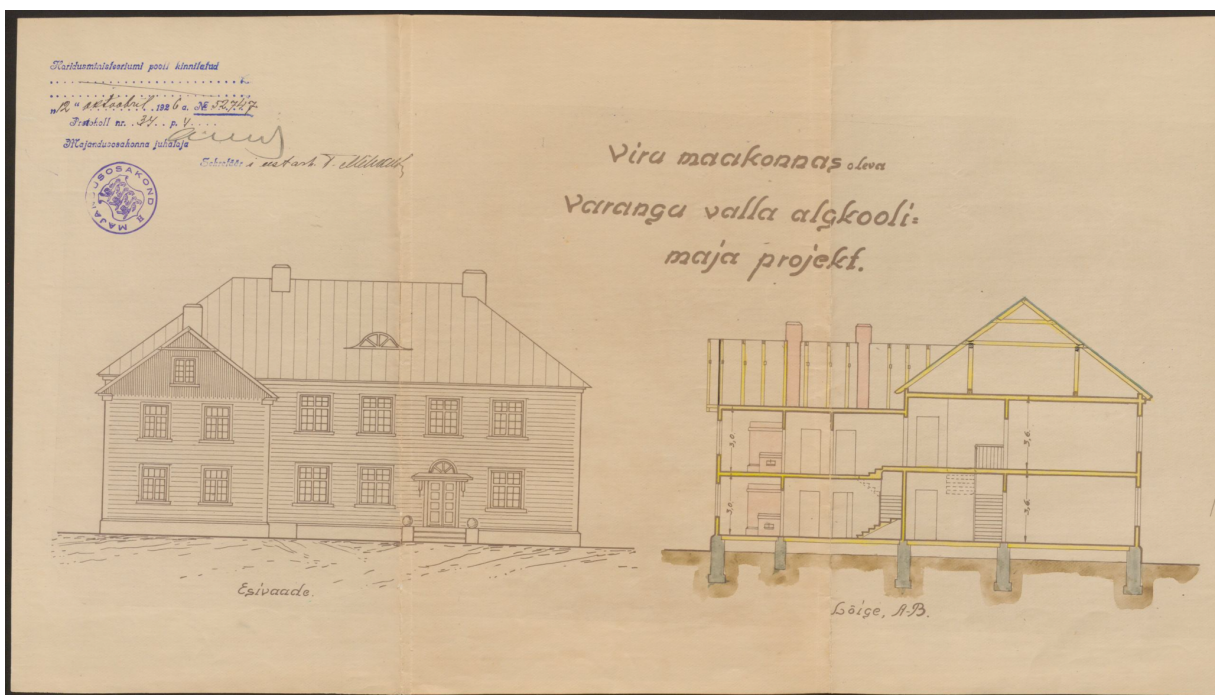 Haridusministeeriumi poolt kinnitatud
"12" oktoobril 1926 a. № 52747
Protokoll nr. 34. p. V.
Majandusosakonna juhataja
MAJANDUSOSAKOND
Viru maakonnas oleva
Varangu valla algkooli=
maja projekt.
3,0
3,6
3,0
3,6
Esivaade.
Lõige, A-B.